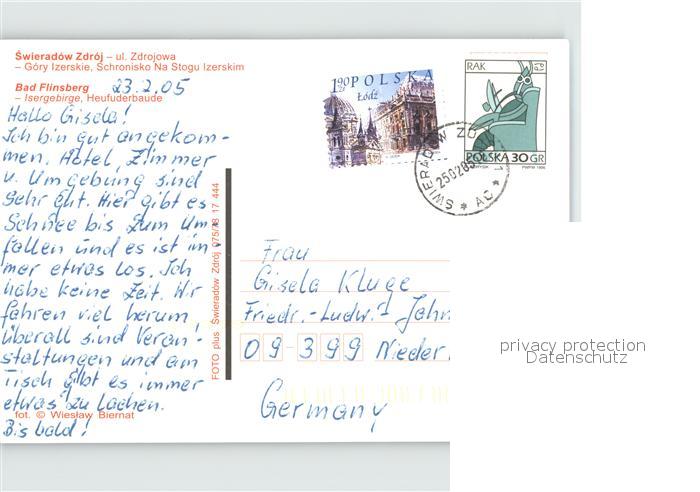 Świeradów Zdrój – ul. Zdrojowa
– Góry Izerskie, Schronisko Na Stogu Izerskim
Bad Flinsberg
– Isergebirge, Heufuderbaude
23.2.05
Hallo Gisela!
Ich bin gut angekom-
men. Hotel, Zimmer
u. Umgebung sind
sehr gut. Hier gibt es
Schnee bis zum Um-
fallen und es ist im-
mer etwas los. Ich
habe keine Zeit. Wir
fahren viel herum
überall sind Veran-
staltungen und am
Tisch gibt es immer
etwas zu lachen.
Bis bald!
fot. © Wiesław Biernat
FOTO plus Świeradów Zdrój 075/78 17 444
1,90 zł POLSKA
Łódź
RAK
POLSKA 30 GR
PWPW 1996
ŚWIERADÓW ZD
250205
Frau
Gisela Kluge
Friedr.-Ludw.- Jahn
09-399 Nieder
Germany
privacy protection
Datenschutz